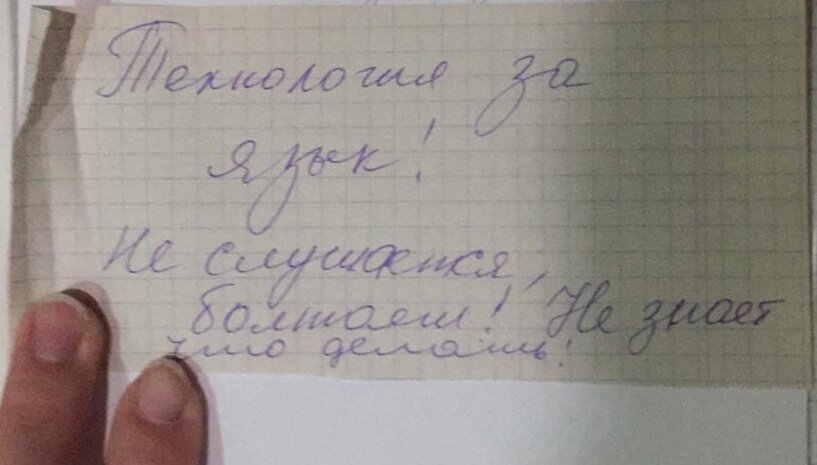 Технология за
язык!
Не слушается,
болтает! Не знает
что делать!